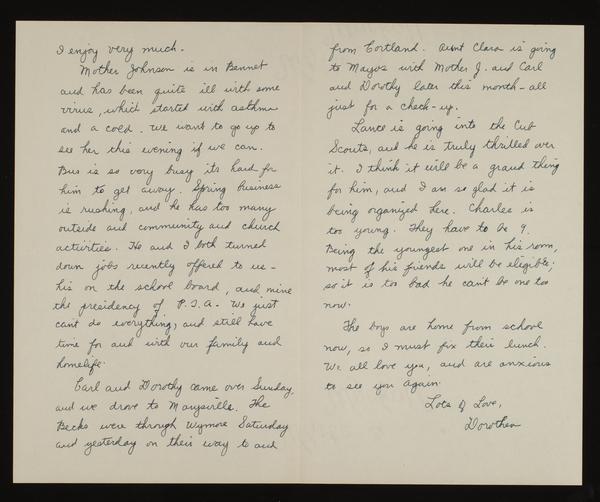 I enjoy very much.
Mother Johnson is in Bennet
and has been quite ill with some
virus, which started with asthma
and a cold. We want to go up to
see her this evening if we can.
Bus is so very busy its hard for
him to get away. Spring business
is rushing, and he has too many
outside and community and church
activities. He and I both turned
down jobs recently offered to us -
his on the school board, and mine
the presidency of P.T.A. We just
can't do everything, and still have
time for and with our family and
homelife.
Carl and Dorothy came over Sunday,
and we drove to Marysville. The
Becks were through Wymore Saturday
and yesterday on their way to and
from Cortland. Aunt Clara is going
to Mayos with Mother J. and Carl
and Dorothy later this month - all
just for a check-up.
Lance is going into the Cub
Scouts, and he is truly thrilled over
it. I think it will be a grand thing
for him, and I am so glad it is
being organized here. Charles is
too young. They have to be 9.
Being the youngest one in his room,
most of his friends will be eligible;
so it is too bad he can't be one too
now.
The boys are home from school
now, so I must fix their lunch.
We all love you, and are anxious
to see you again.
Lots of Love,
Dorothea